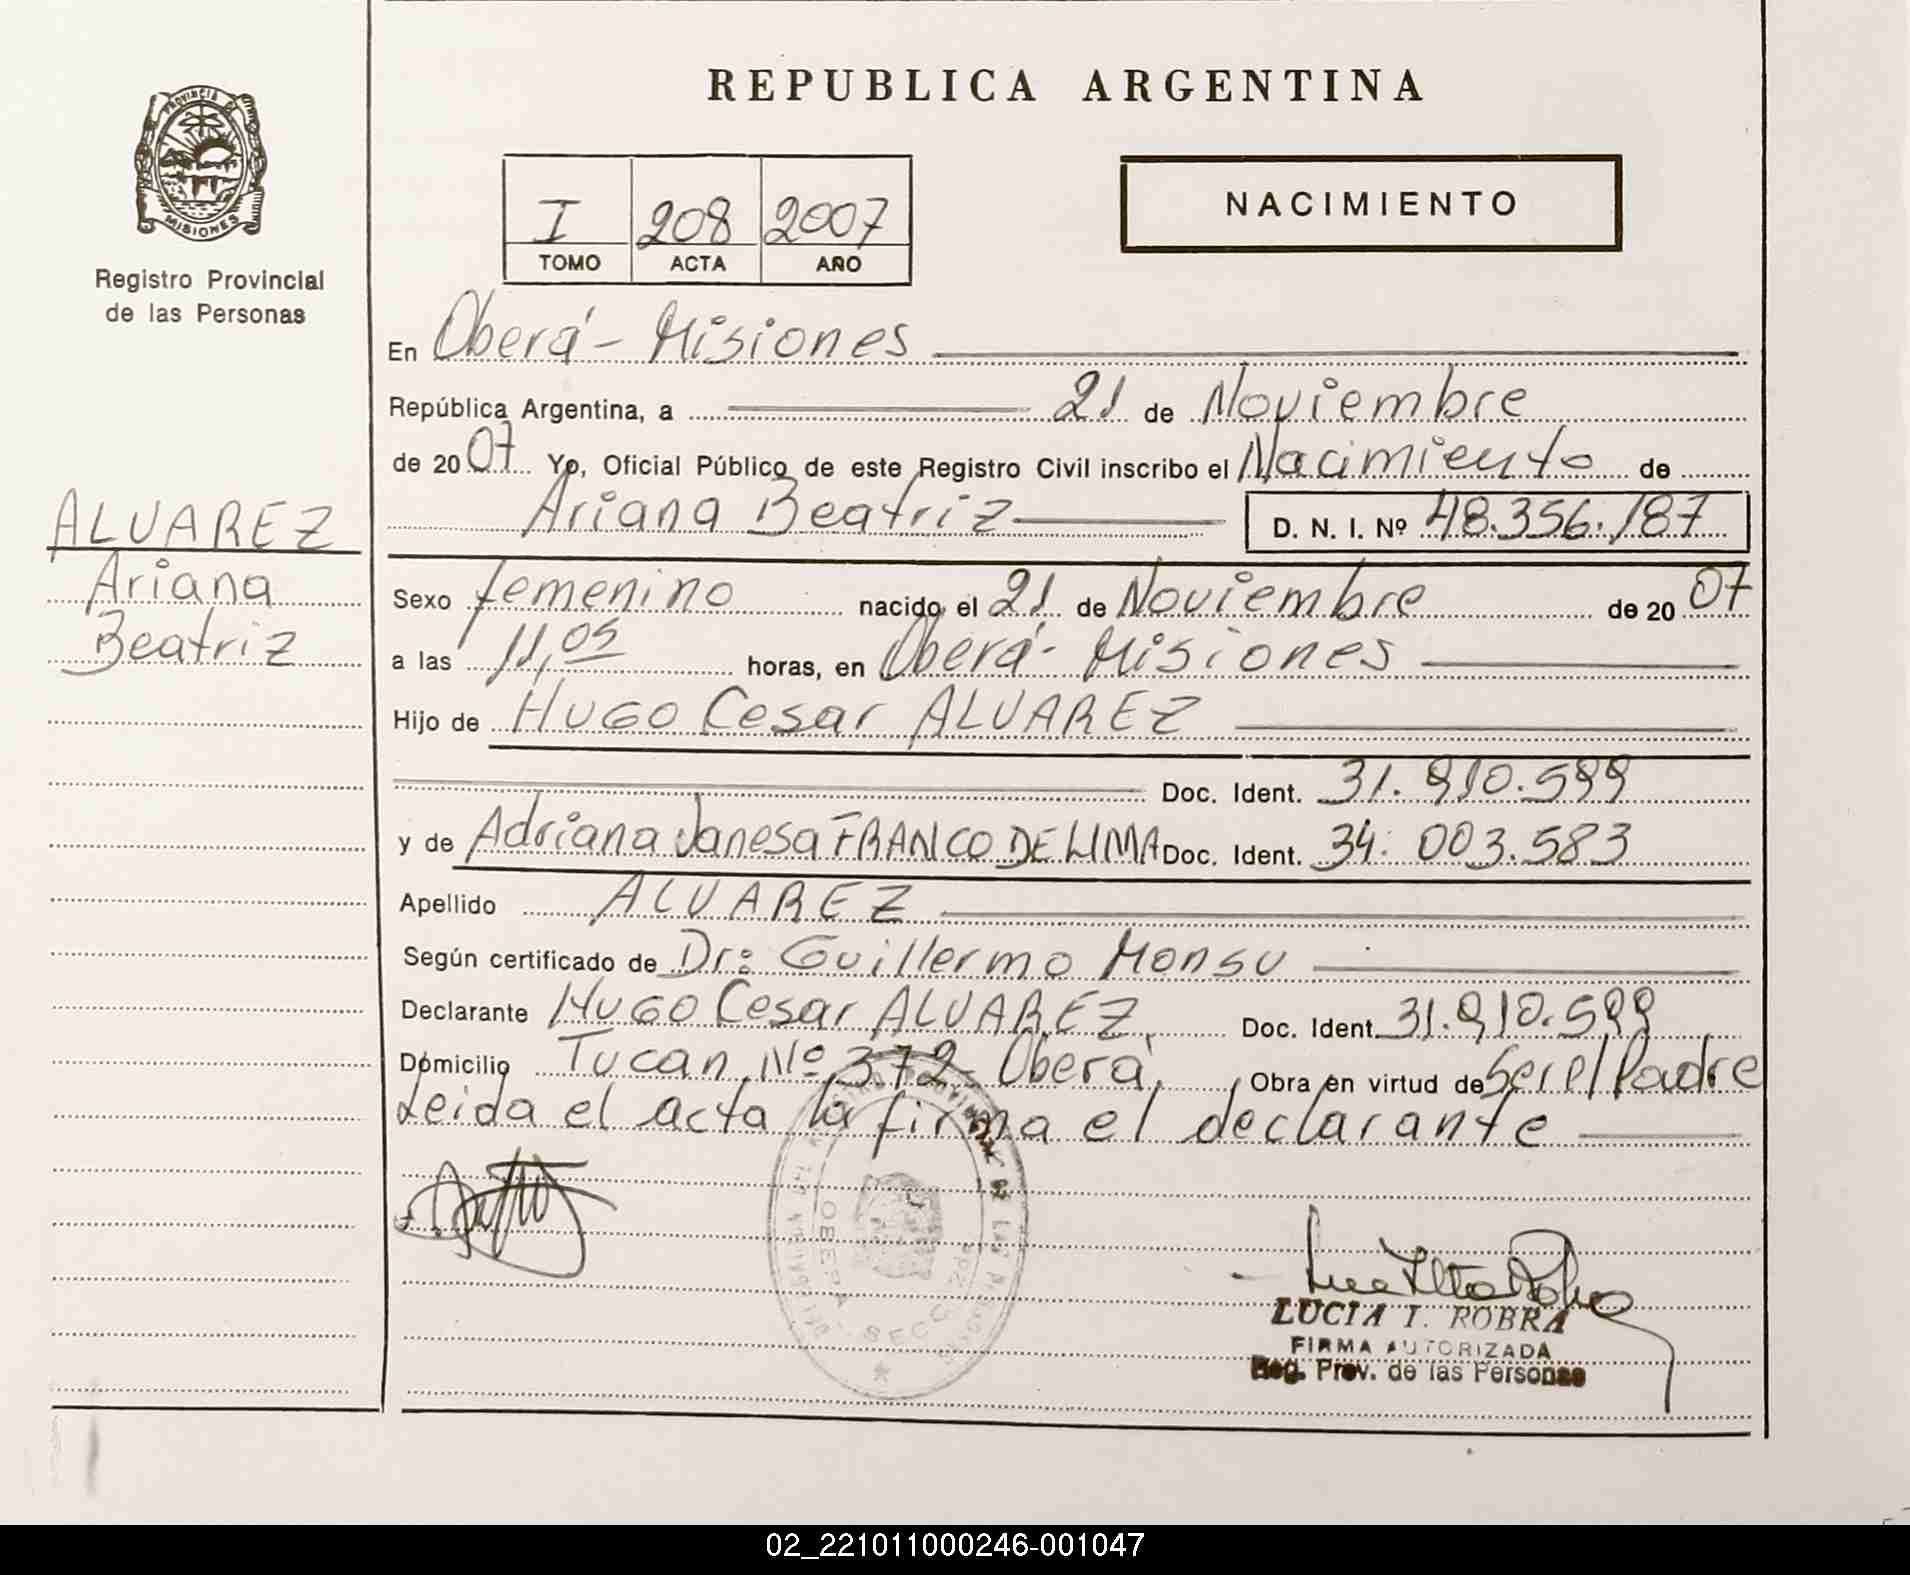 REPUBLICA ARGENTINA
PROVINCIA DE
MISIONES
Registro Provincial
de las Personas
I 208 2007
TOMO ACTA AÑO
NACIMIENTO
En Oberá - Misiones
República Argentina, a 21 de Noviembre
de 2007 Yo, Oficial Público de este Registro Civil inscribo el Nacimiento de
Ariana Beatriz D. N. I. Nº 48.356.187
ALVAREZ
Ariana
Beatriz
Sexo femenino nacido el 21 de Noviembre de 2007
a las 11,05 horas, en Oberá - Misiones
Hijo de Hugo Cesar ALVAREZ
Doc. Ident. 31.910.599
y de Adriana Vanesa FRANCO DE LIMA Doc. Ident. 34.003.583
Apellido ALVAREZ
Según certificado de Dr: Guillermo Monsu
Declarante Hugo Cesar ALVAREZ, Doc. Ident. 31.910.599
Domicilio Tucan Nº 372 - Oberá, Obra en virtud de Ser el Padre
Leida el acta la firma el declarante
OBERA - SECC
LUCIA I. ROBRA
FIRMA AUTORIZADA
Reg. Prov. de las Personas
02_221011000246-001047